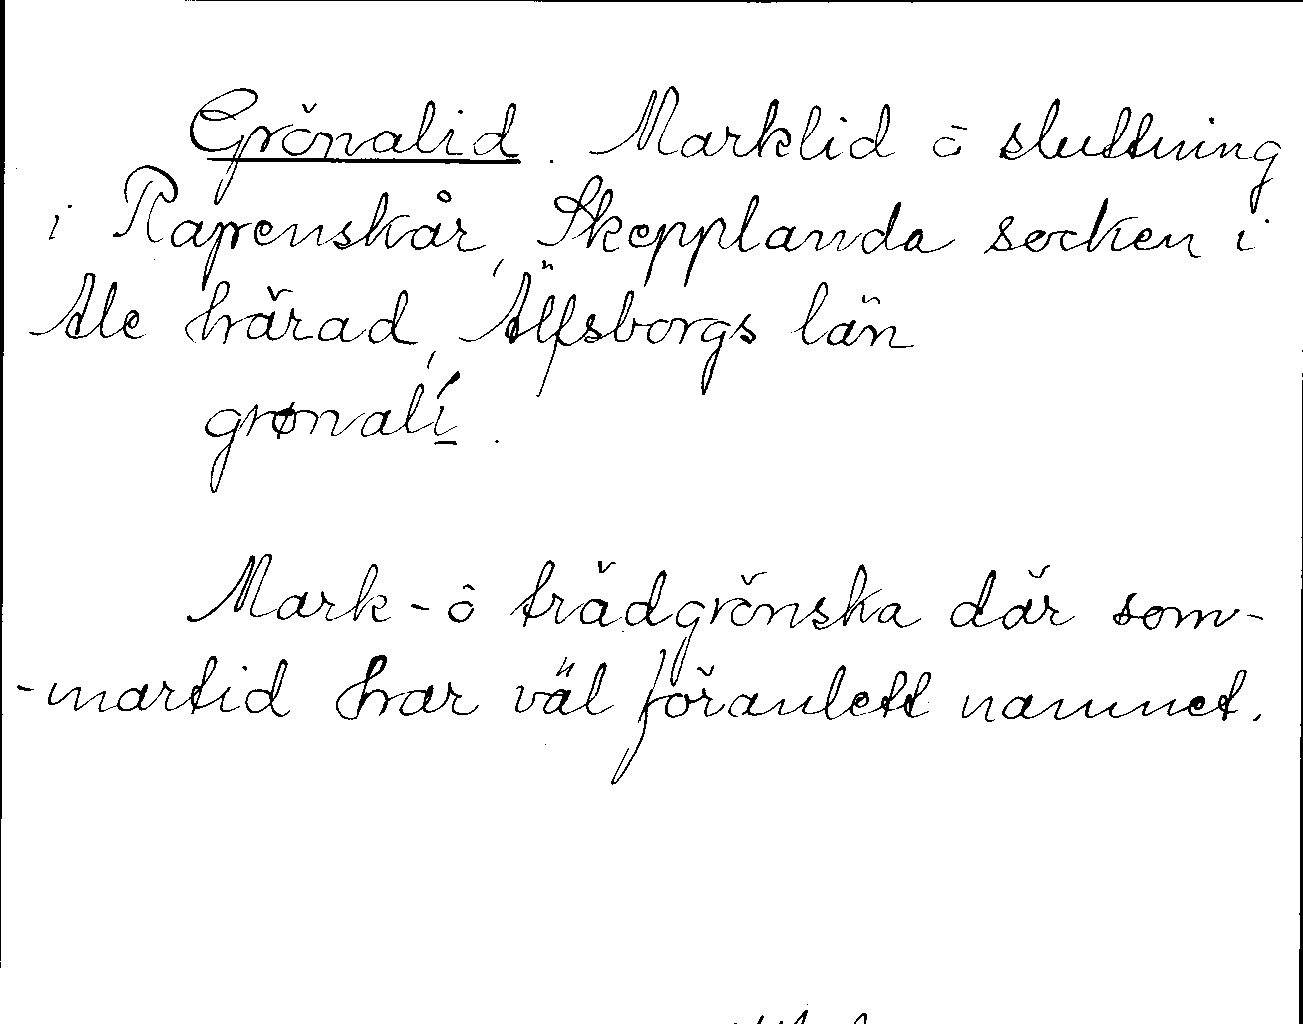 Grönalid. Marklid o sluttning
i Rapenskår, Skepplanda socken i
Ale härad, Älfsborgs län
grønalí.
Mark- o trädgrönska där som-
-martid har väl föranlett namnet.